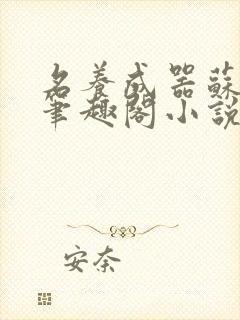 名養成器蘇
筆趣閣小說
安奈